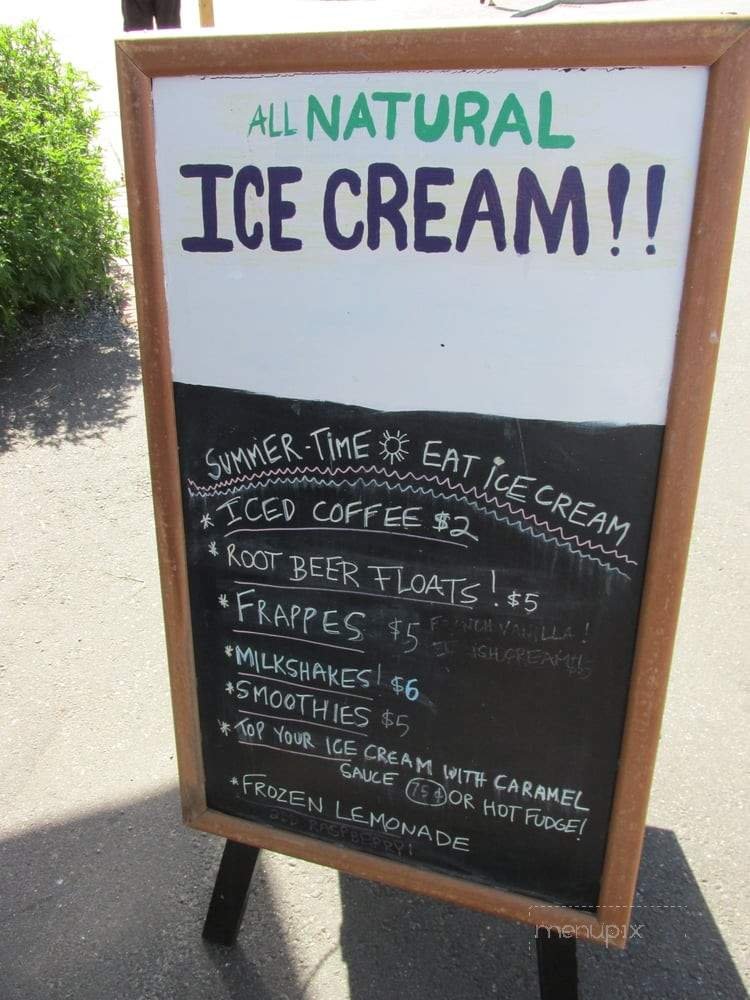 ALL NATURAL
ICE CREAM!!
SUMMER-TIME EAT ICE CREAM
* ICED COFFEE $2
* ROOT BEER FLOATS! $5
* FRAPPES $5 FRENCH VANILLA!
IRISH CREAM!!
* MILKSHAKES! $6
* SMOOTHIES $5
* TOP YOUR ICE CREAM WITH CARAMEL
SAUCE 75¢ OR HOT FUDGE!
* FROZEN LEMONADE
RASPBERRY!
menupix